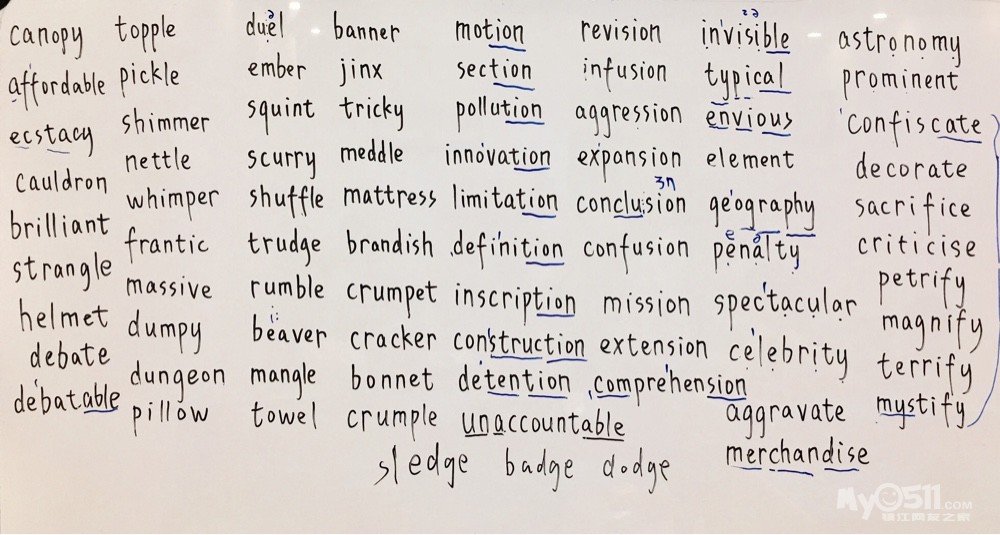 canopy topple duel banner motion revision invisible astronomy
affordable pickle ember jinx section infusion typical prominent
ecstacy shimmer squint tricky pollution aggression envious confiscate
cauldron nettle scurry meddle innovation expansion element decorate
brilliant whimper shuffle mattress limitation conclusion geography sacrifice
strangle frantic trudge brandish definition confusion penalty criticise
helmet massive rumble crumpet inscription mission spectacular petrify
debate dumpy beaver cracker construction extension celebrity magnify
debatable dungeon mangle bonnet detention comprehension terrify
pillow towel crumple unaccountable aggravate mystify
sledge badge dodge merchandise
My0511.COM
镇江网友之家